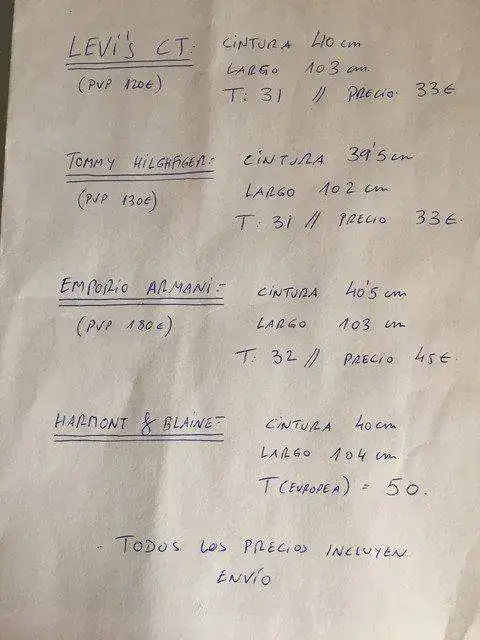 LEVI'S CT: CINTURA 40 cm
(PVP 120€) LARGO 103 cm
T: 31 // PRECIO: 33€
TOMMY HILGHFIGER:- CINTURA 39'5 cm
(PVP 130€) LARGO 102 cm
T: 31 // PRECIO 33€.
EMPORIO ARMANI:- CINTURA 40'5 cm
(PVP 180€) LARGO 103 cm
T: 32 // PRECIO 45€.
HARMONT & BLAINE:- CINTURA 40 cm
LARGO 104 cm
T(EUROPEA) = 50.
- TODOS LOS PRECIOS INCLUYEN
ENVÍO